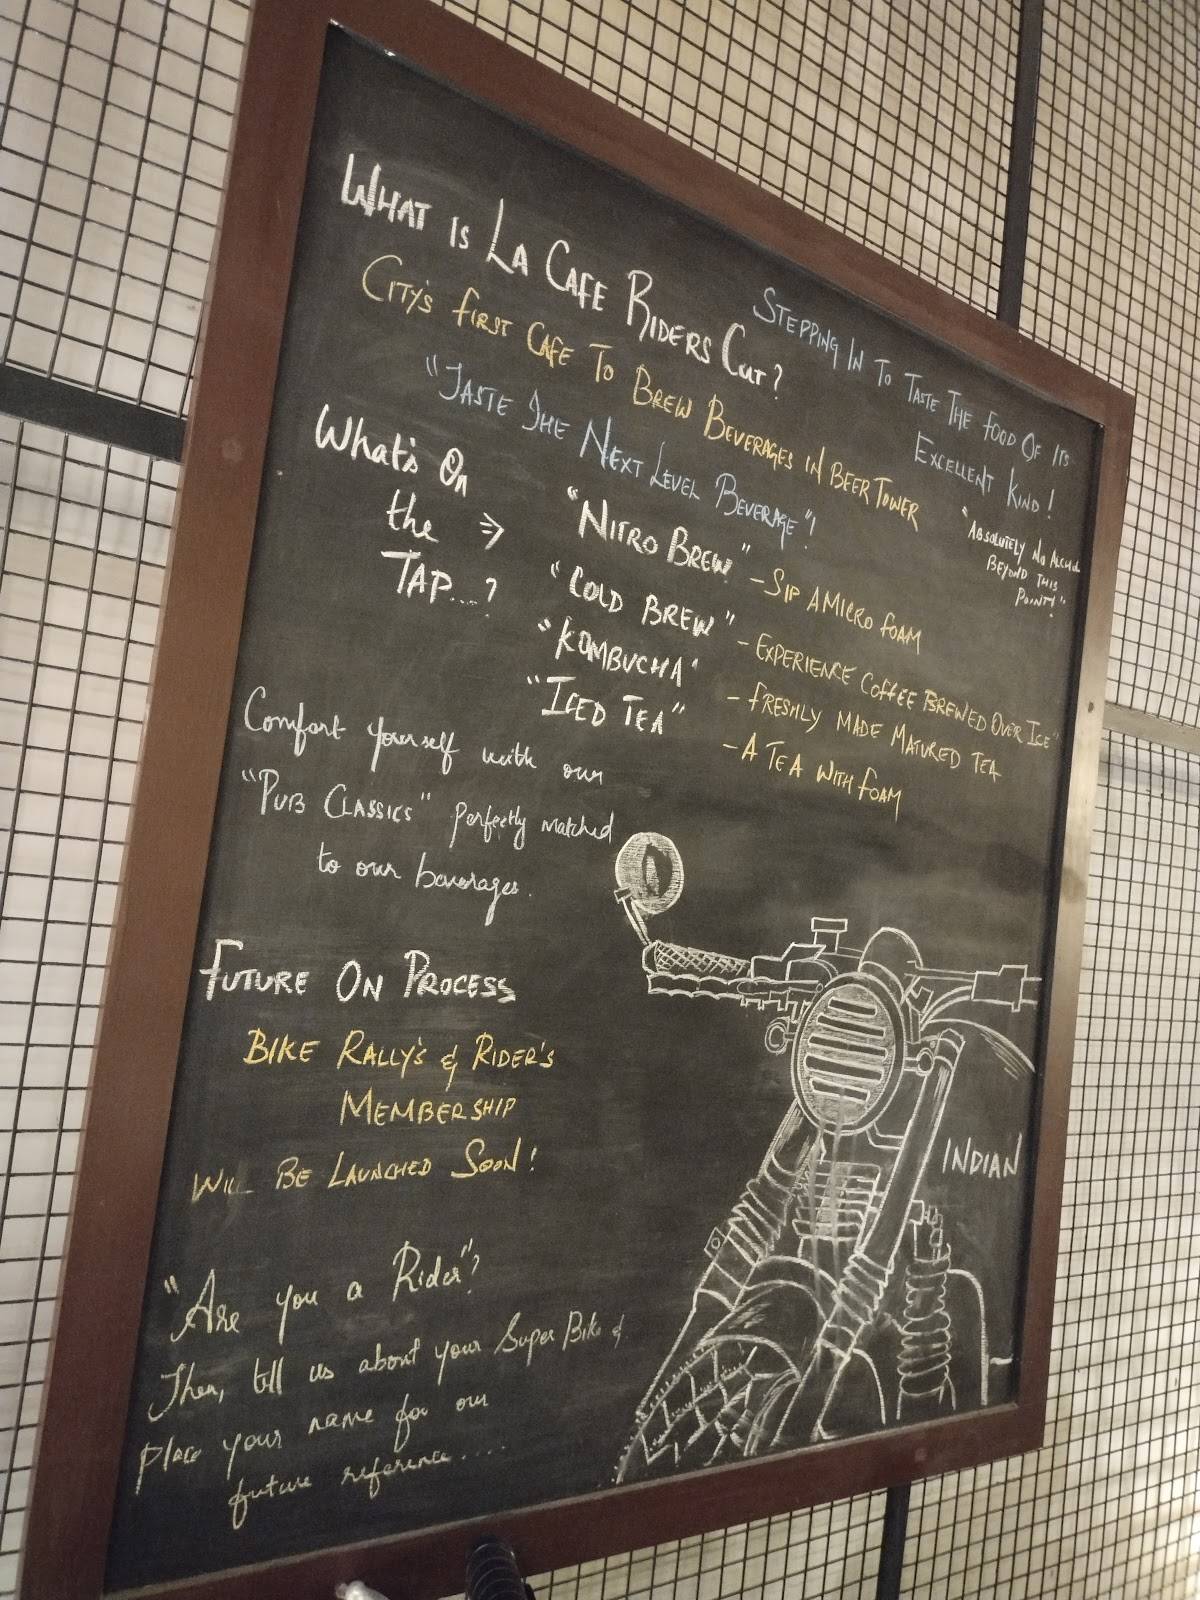 WHAT IS LA CAFE RIDERS CUT?
CITY'S FIRST CAFE TO BREW BEVERAGES IN BEER TOWER
"TASTE THE NEXT LEVEL BEVERAGE"!
STEPPING IN TO TASTE THE FOOD OF ITS
EXCELLENT KIND!
"ABSOLUTELY NO ALCOHOL
BEYOND THIS
POINT!"
What's On
the ⇒
TAP....?
"NITRO BREW" - SIP A MICRO FOAM
"COLD BREW" - EXPERIENCE COFFEE BREWED OVER ICE"
"KOMBUCHA" - FRESHLY MADE MATURED TEA
"ICED TEA" - A TEA WITH FOAM
Comfort yourself with our
"PUB CLASSICS" perfectly matched
to our beverages.
FUTURE ON PROCESS
BIKE RALLY'S & RIDER'S
MEMBERSHIP
WILL BE LAUNCHED SOON!
"Are you a Rider"?
Then, tell us about your Super Bike &
Place your name for our
future reference.....
INDIAN